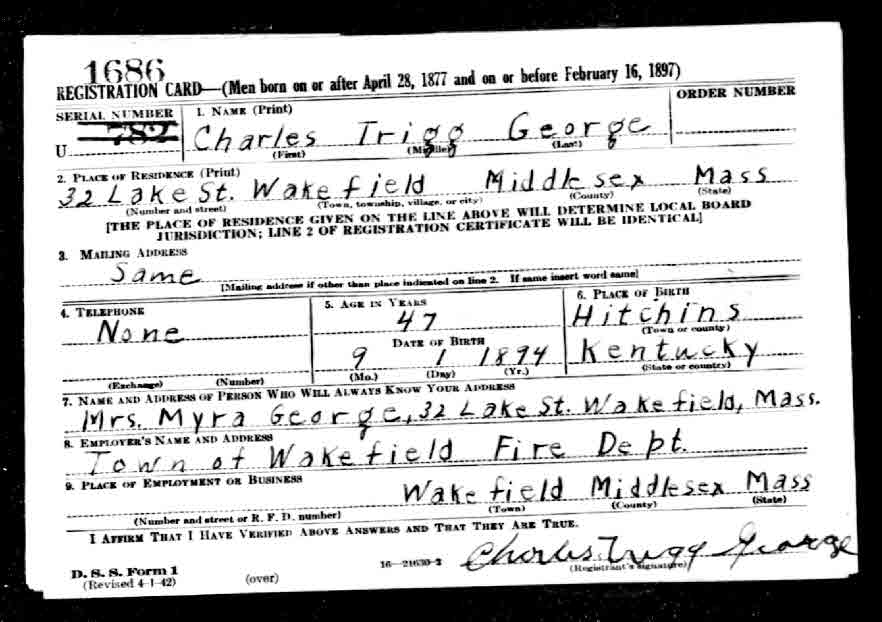 1686
REGISTRATION CARD—(Men born on or after April 28, 1877 and on or before February 16, 1897)
SERIAL NUMBER 1. NAME (Print) ORDER NUMBER
U 782 Charles Trigg George
(First) (Middle) (Last)
2. PLACE OF RESIDENCE (Print)
32 Lake St. Wakefield Middlesex Mass
(Number and street) (Town, township, village, or city) (County) (State)
[THE PLACE OF RESIDENCE GIVEN ON THE LINE ABOVE WILL DETERMINE LOCAL BOARD
JURISDICTION; LINE 2 OF REGISTRATION CERTIFICATE WILL BE IDENTICAL]
3. MAILING ADDRESS
Same
[Mailing address if other than place indicated on line 2. If same insert word same]
4. TELEPHONE 5. AGE IN YEARS 6. PLACE OF BIRTH
None 47 Hitchins
(Town or county)
DATE OF BIRTH
9 1 1894 Kentucky
(Exchange) (Number) (Mo.) (Day) (Yr.) (State or country)
7. NAME AND ADDRESS OF PERSON WHO WILL ALWAYS KNOW YOUR ADDRESS
Mrs. Myra George, 32 Lake St. Wakefield, Mass.
8. EMPLOYER'S NAME AND ADDRESS
Town of Wakefield Fire Dept.
9. PLACE OF EMPLOYMENT OR BUSINESS
Wakefield Middlesex Mass
(Number and street or R. F. D. number) (Town) (County) (State)
I AFFIRM THAT I HAVE VERIFIED ABOVE ANSWERS AND THAT THEY ARE TRUE.
Charles Trigg George
D. S. S. Form 1 16—21630-2 (Registrant's signature)
(Revised 4-1-42) (over)